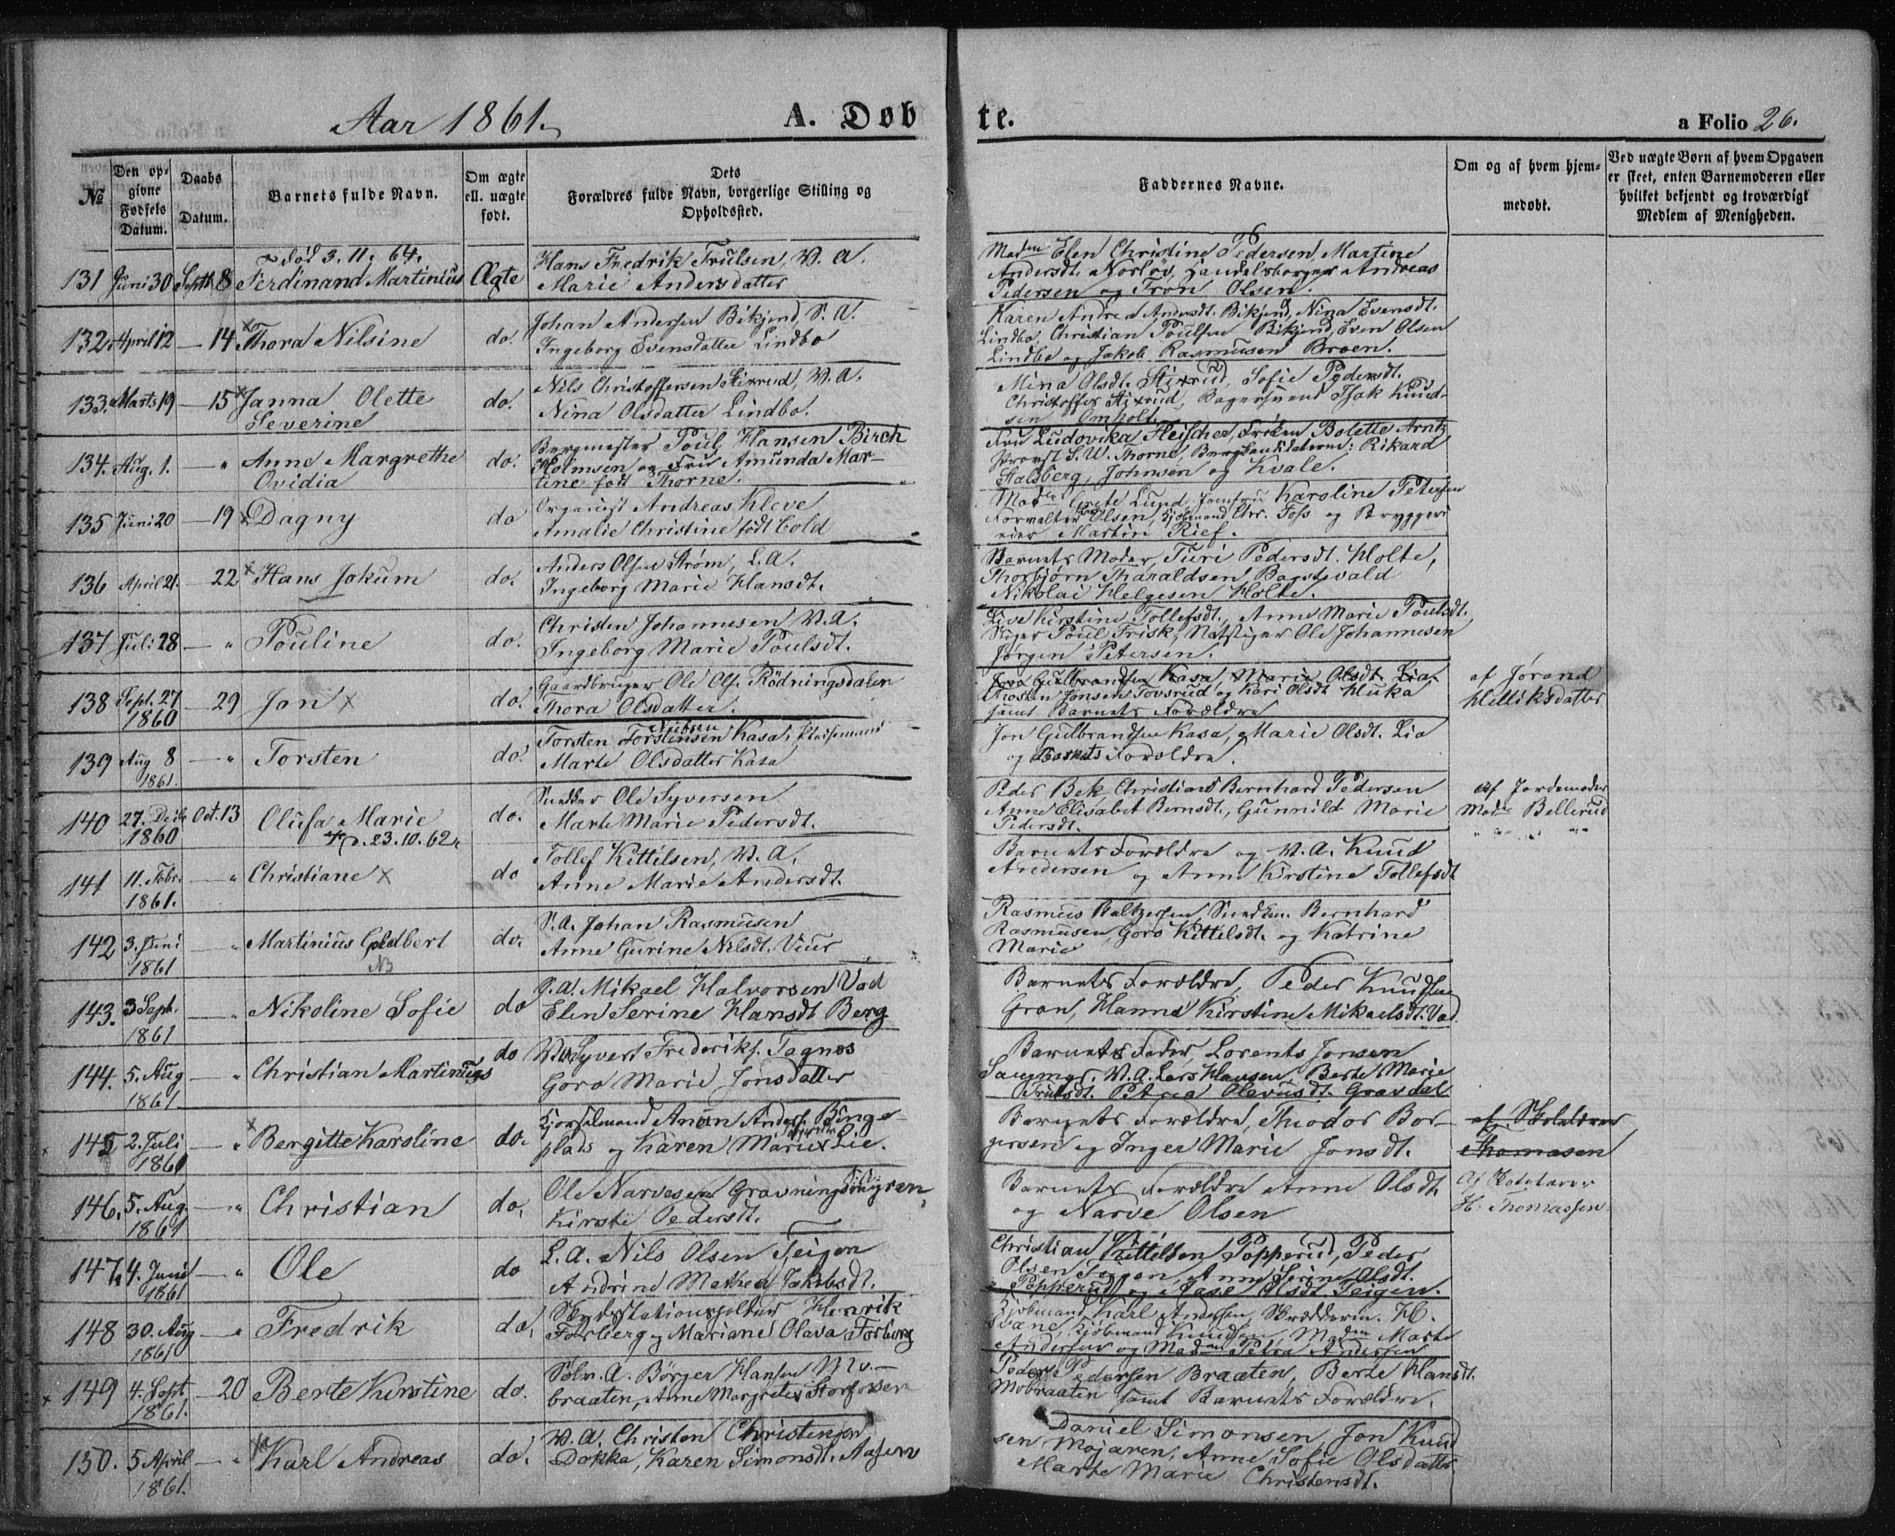 Aar 1861.
A. Døbte.
a Folio 26.
No
Den opgivne Fødsels Datum.
Daabs Datum.
Barnets fulde Navn.
Om ægte ell. uægte født.
Dets Forældres fulde Navn, borgerlige Stilling og Opholdssted.
Faddernes Navne.
Om og af hvem hjemmedøbt.
Ved uægte Børn af hvem Opgaven er skeet, enten Barnemoderen eller hvilket bekjendt og troværdigt Medlem af Menigheden.
død 3. 11. 64.
131 Juni 30 Septb 8 Ferdinand Martinius Ægte
Hans Fredrik Trulsen, V. A.
Marie Andersdatter
Mad Elen Christine Pedersen, Martine
Andersdt. Norløv, Handelsborger Andreas
Pedersen og Tron Olsen.
132 April 12 — 14 Thora Nilsine do.
Johan Andersen Bikjend, S. A.
Ingeborg Evensdatter Lindbo
Karen Andrea Andersdt. Bikjend, Nina Evensdt.
Lindbo, Christian Poulsen Bikjend, Even Olsen
Lindbo og Jakob Rasmusen Broen.
133. Marts 19 — 15 Janna Olette
Severine do.
Nils Christoffersen Stixrud, V. A.
Nina Olsdatter Lindbo.
Mina Olsdt. Stixrud, Sofie Pedersdt.
Christoffer Stixrud, Bagersvend Isak Knud-
sen Omholt.
134. Aug. 1. — " Anne Margrethe
Ovidia do.
Bergmester Poul Hansen Birch
Holmsen og Fru Amunda Mar-
tine født Thorne.
Fru Ludovika Fleischer, Frøken Bolette Arntz
Provst S. W. Thorne, Bergkandidaterne: Rikard
Halsberg, Johnsen og Kvale.
135 Juni 20 — 19 Dagny do
Organist Andreas Kleve
Amalie Christine født Cold
Mad Grete Lund, Jomfru Karoline Petersen
Forvalter Olsen, Kjøbmand Chr. Foss og Brygger
Martin Rief.
136 April 21. — 22 Hans Jokum do.
Anders Olsen Strøm, L. A.
Ingeborg Marie Hansdt.
Barnets Moder, Turi Pedersdt. Holte,
Thorbjørn Tharaldsen Bagstevald
Nikolai Helgesen Holte.
137 Juli 28 — " Pouline do.
Christen Johannesen V. A.
Ingeborg Marie Poulsdt.
Live Kirstine Tollefsdt., Anne Marie Poulsdt.
Stiger Poul Frisk, Natstiger Ole Johannesen
Jørgen Petersen.
138 Sept. 27
1860 — 29 Jon do.
Gaardbruger Ole Ols. Rödningsdalen
Thora Olsdatter.
Jon Gulbrandsen Kasa, Marie Olsdt. Lia,
Thosten Jonsen Tovsrud og Kari Olsdt. Huka
samt Barnets Forældre
af Jørand
Helliksdatter
139 Aug 8
1861. — " Torsten do.
Torsten Torstensen Kasa, Pladsemand
Marte Olsdatter Kasa
Jon Gulbrandsen Kasa, Marie Olsdt. Lia
og Barnets Forældre.
140 27. Decb
1860 Oct. 13 Olufa Marie
D. 23. 10. 62 do.
Smedker Ole Syversen
Marte Marie Pedersdt.
Peder Bek, Christian Bernhard Pedersen
Anne Elisabet Berntsdt., Gunnild Marie
Pedersdt.
Af Jordemoder
Mad Bellerud
141 11. Febr.
1861. — " Christiane do
Tollef Kittilsen, V. A.
Anne Marie Andersdt.
Barnets Forældre og V. A. Knud
Andersen og Anne Kirstine Tollefsdt
142 3. Juni
1861 — " Martinius Goldbert do.
S. A. Johan Rasmusen
Anne Gurine Nilsdt. Viur
Rasmus Baltzersen, Smedsv. Bernhard
Rasmusen, Goro Kittelsdt. og Katrine
Marie
143. 3 Sept.
1861 — " Nikoline Sofie do
S. A. Mikael Halvorsen Vad
Elen Serine Hansdt Berg
Barnets Forældre, Peder Knudsen
Gran, Hanne Kirstine Mikaelsdt. Vad
144. 5. Aug
1861 — " Christian Martinius do
V. A. Syvert Frederiks. Tagnes
Goro Marie Jonsdatter
Barnets Fader, Lorents Jonsen
Saugmr. V. A. Lars Hansen, Berte Marie
Trulsdt. Petrea Olevusdt. Gravdal
145 2. Juli
1861 — " Bergitte Karoline do.
Kjørselmand Anun Anders. Bønge-
plads og Karen Marie Lie.
Barnets Forældre, Theodor Bor-
gersen og Inger Marie Jonsdt.
af Skolelærer
Thomasen
146. 5. Aug.
1861 — " Christian do.
Ole Narvesen Gravningsmyren
Kirsti Pedersdt.
Barnets Forældre Anne Olsdt.
og Narve Olsen
Af Skolelærer
H. Thomassen
147 4. Juni
1861 — " Ole do
L. A. Nils Olsen Teigen
Andrine Mathea Jakobsdt.
Christian Kittelsen Popperud, Peder
Olsen Teigen, Anne Serine Olsdt.
Popperud og Aase Olsdt Teigen.
148 30. Aug
1861 — " Fredrik do,
Skydsstationsholder Henrik
Forberg og Mariane Olava Forberg
Kjøbmand Karl Andersen, Skrædderm. H.
Svane, Kjøbmand Knudsen, Mad Marte
Andersen og Mad Petra Andersen
149 4. Sept
1861. — 20 Berte Kirstine do.
Sølv. A. Børger Hansen Mo-
braaten, Anne Margrete Storfossen
Peder Pedersen Braaten, Berte Hansdt.
Mobraaten samt Barnets Forældre.
150. 5 April
1861. — " Karl Andreas do.
V. A. Christen Christensen
Dokka, Karen Simonsdt. Aasen
Daniel Simonsen, Jon Knud
sen Myjaren, Anne Sofie Olsdatter
Marte Marie Christensdt.